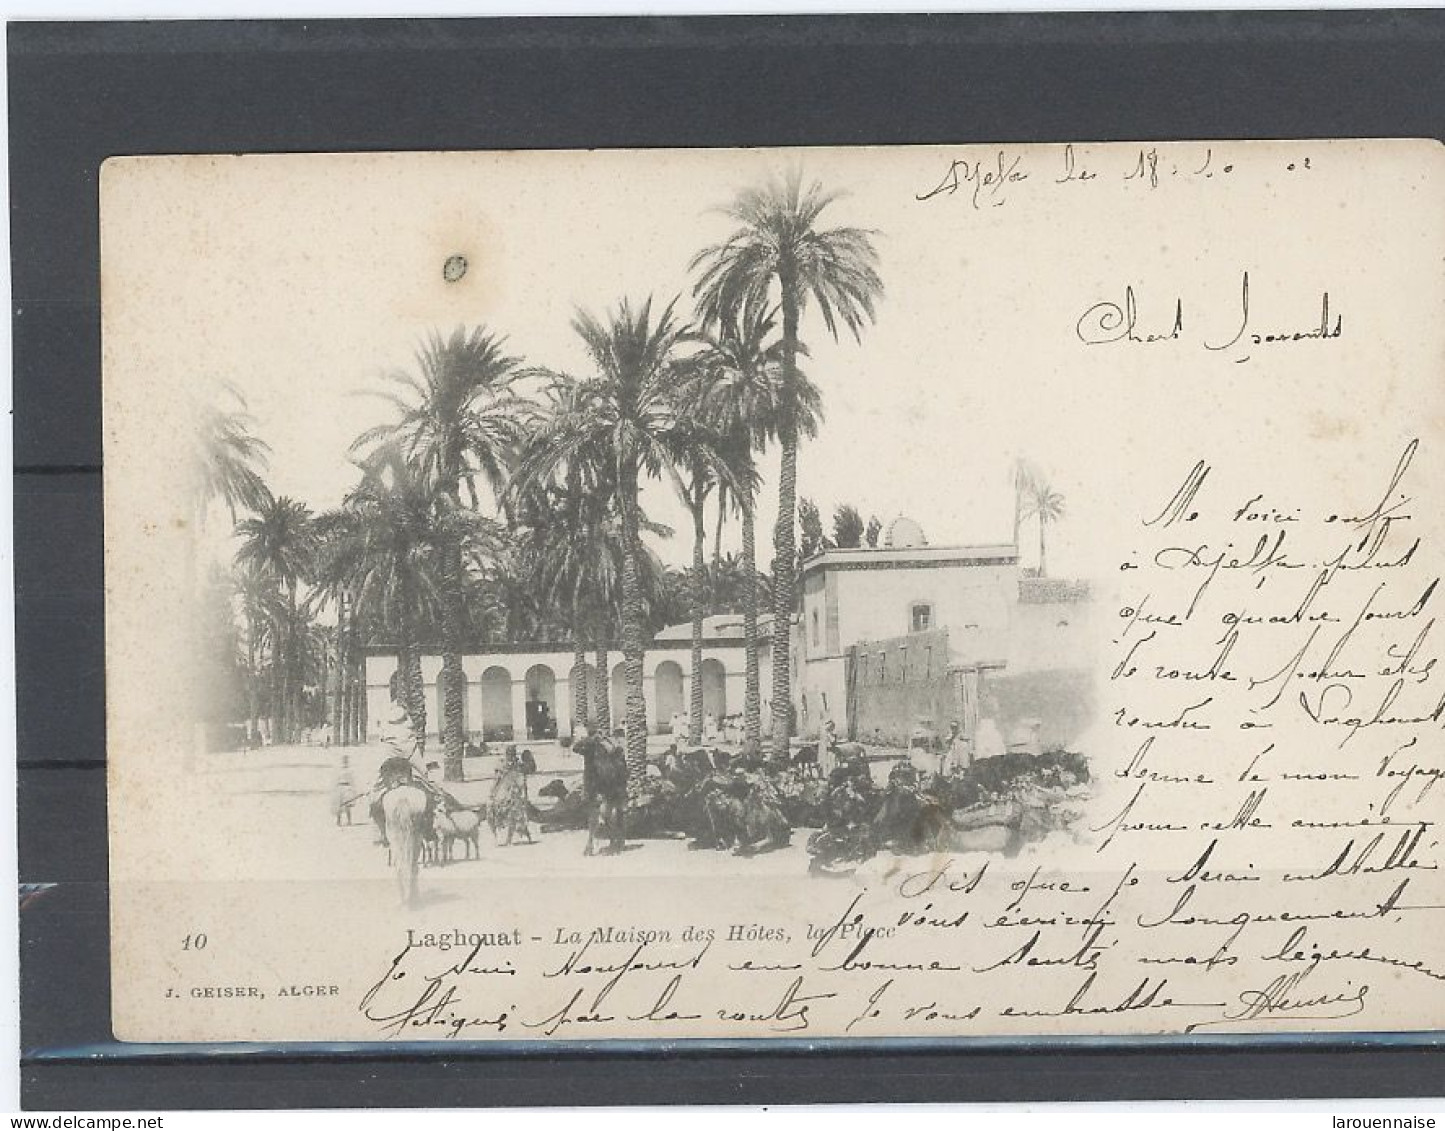 Djelfa le 18.10 02
Chers parents
Me voici enfin
à Djelfa. plus
que quatre jours
de route, pour être
rendu à Laghouat,
terme de mon voyage
pour cette année.
Dis que je serai installé
je vous écrirai longuement,
10
Laghouat - La Maison des Hôtes, la Place
Je suis toujours en bonne santé mais légèrement
J. GEISER, ALGER
fatigué par la route Je vous embrasse Henri
delcampe.net
larouennaise